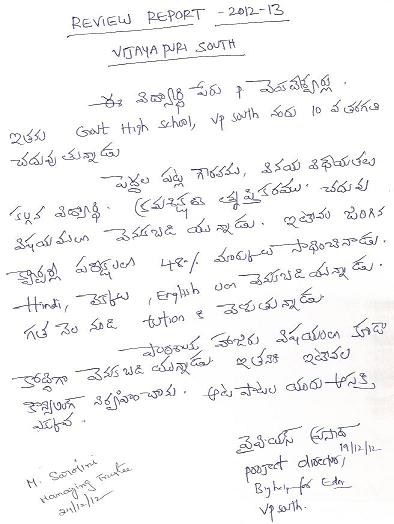 REVIEW REPORT - 2012-13
VIJAYAPURI SOUTH
ఈ విద్యార్థి పేరు
ఇతను Govt High school, vp south నందు 10 వ తరగతి
చదువుతున్నాడు
పెద్దల పట్ల గౌరవము, వినయ విధేయతలు
కల్గిన విద్యార్థి. క్రమశిక్షణ తృప్తికరము. చదువు
విషయములో వెనుకబడి యున్నాడు. ఇటీవల జరిగిన
క్వార్టర్లీ పరీక్షలలో 48% మార్కులు సాధించినాడు.
Hindi, లెక్కలు, English లలో వెనుకబడి యున్నాడు.
గత నెల నుండి tution కి వెళుతున్నాడు
పాఠశాల హాజరు విషయంలో కూడా
కొద్దిగా వెనుకబడి యున్నాడు. ఇతనికి ఇటీవల
కౌన్సిలింగ్ నిర్వహించాము. ఆట పాటల యందు ఆసక్తి
ఎక్కువ.
19/12/12
project director,
Big help for Edn
Vp south.
M. Sarojini
Managing Trustee
24/12/12